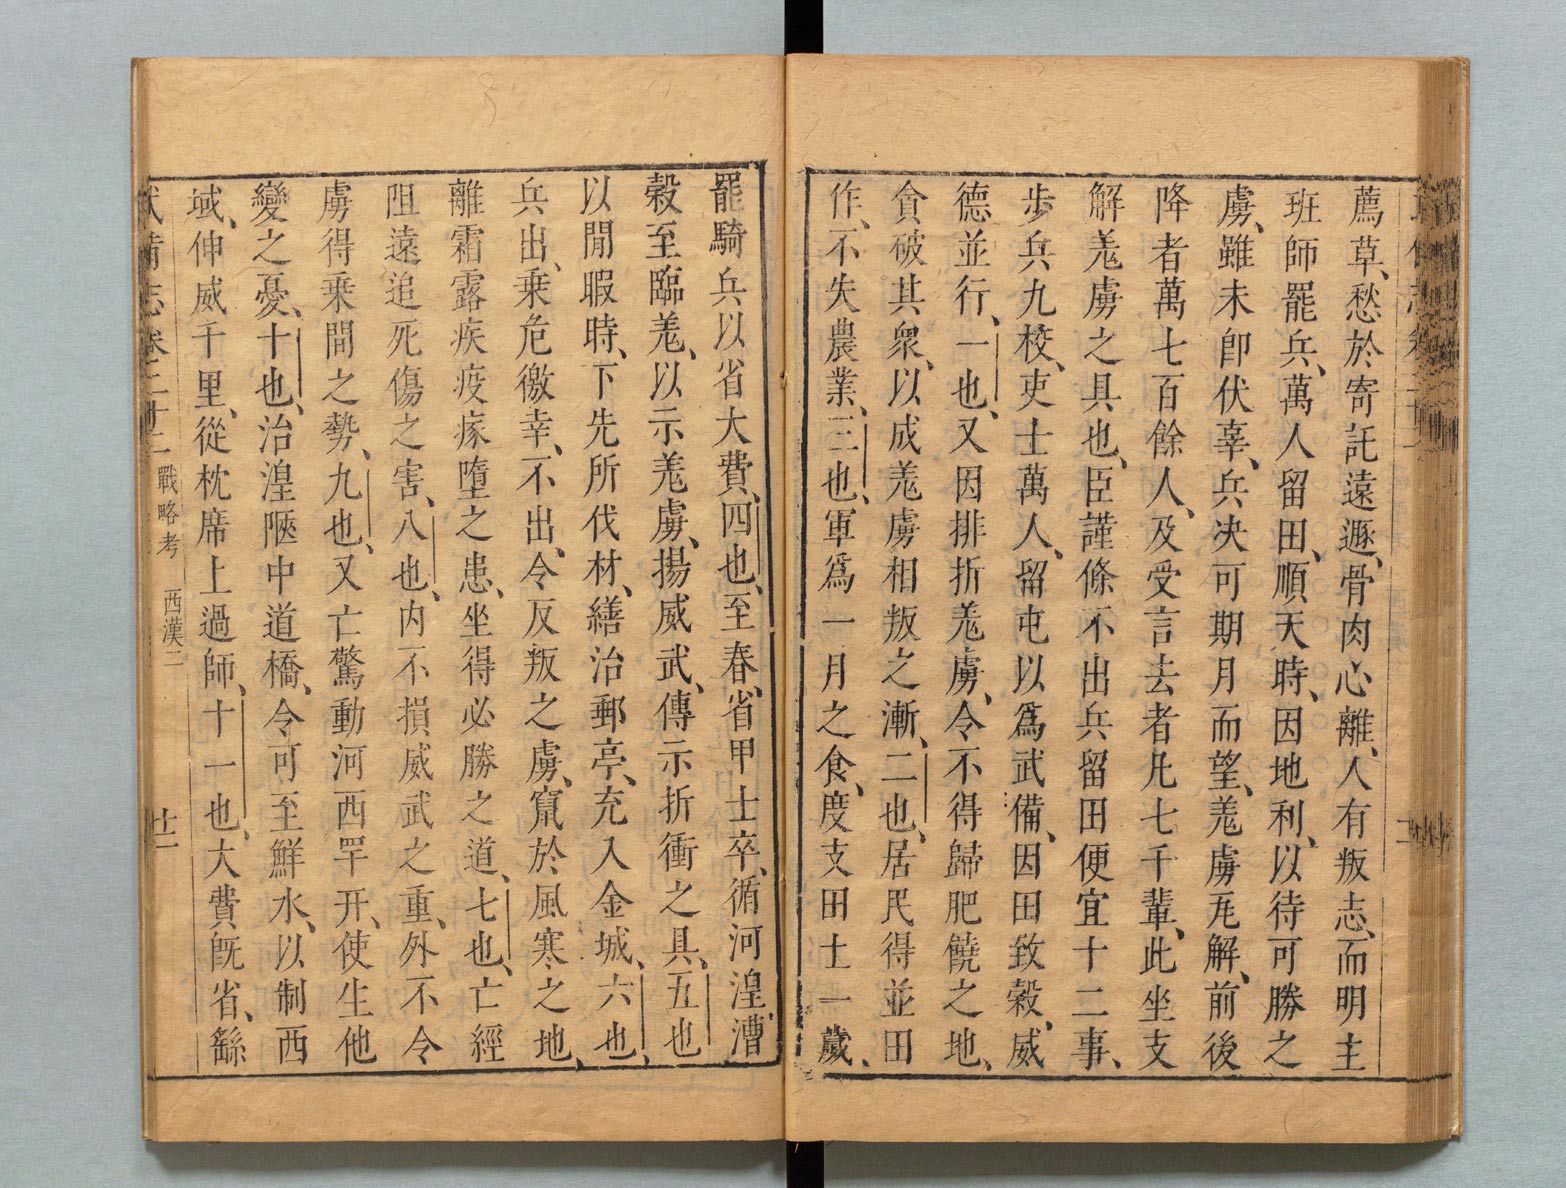 薦草、愁於寄託遠遯、骨肉心離、人有叛志、而明主
班師罷兵、萬人留田、順天時、因地利、以待可勝之
虜、雖未卽伏辜、兵决可期月而望、羗虜瓦解、前後
降者萬七百餘人、及受言去者凡七千輩、此坐支
解羗虜之具也、臣謹條不出兵留田便宜十二事、
步兵九校、吏士萬人、留屯以爲武備、因田致穀、威
德並行、一也、又因排折羗虜、令不得歸肥饒之地、
貪破其衆、以成羗虜相叛之漸、二也、居民得並田
作、不失農業、三也、軍爲一月之食、度支田士一歲、
罷騎兵以省大費、四也、至春、省甲士卒、循河湟、漕
穀至臨羗、以示羗虜、揚威武、傳示折衝之具、五也
以閒暇時、下先所伐材、繕治郵亭、充入金城、六也、
兵出、乗危徼幸、不出、令反叛之虜、竄於風寒之地、
離霜露疾疫瘃墮之患、坐得必勝之道、七也、亡經
阻遠追死傷之害、八也、内不損威武之重、外不令
虜得乗間之勢、九也、又亡驚動河西䍐幵、使生他
變之憂、十也、治湟陿中道橋、令可至鮮水、以制西
域、伸威千里、從枕席上過師、十一也、大費旣省、繇
武備志卷二十二 戰略考 西漢二 十二